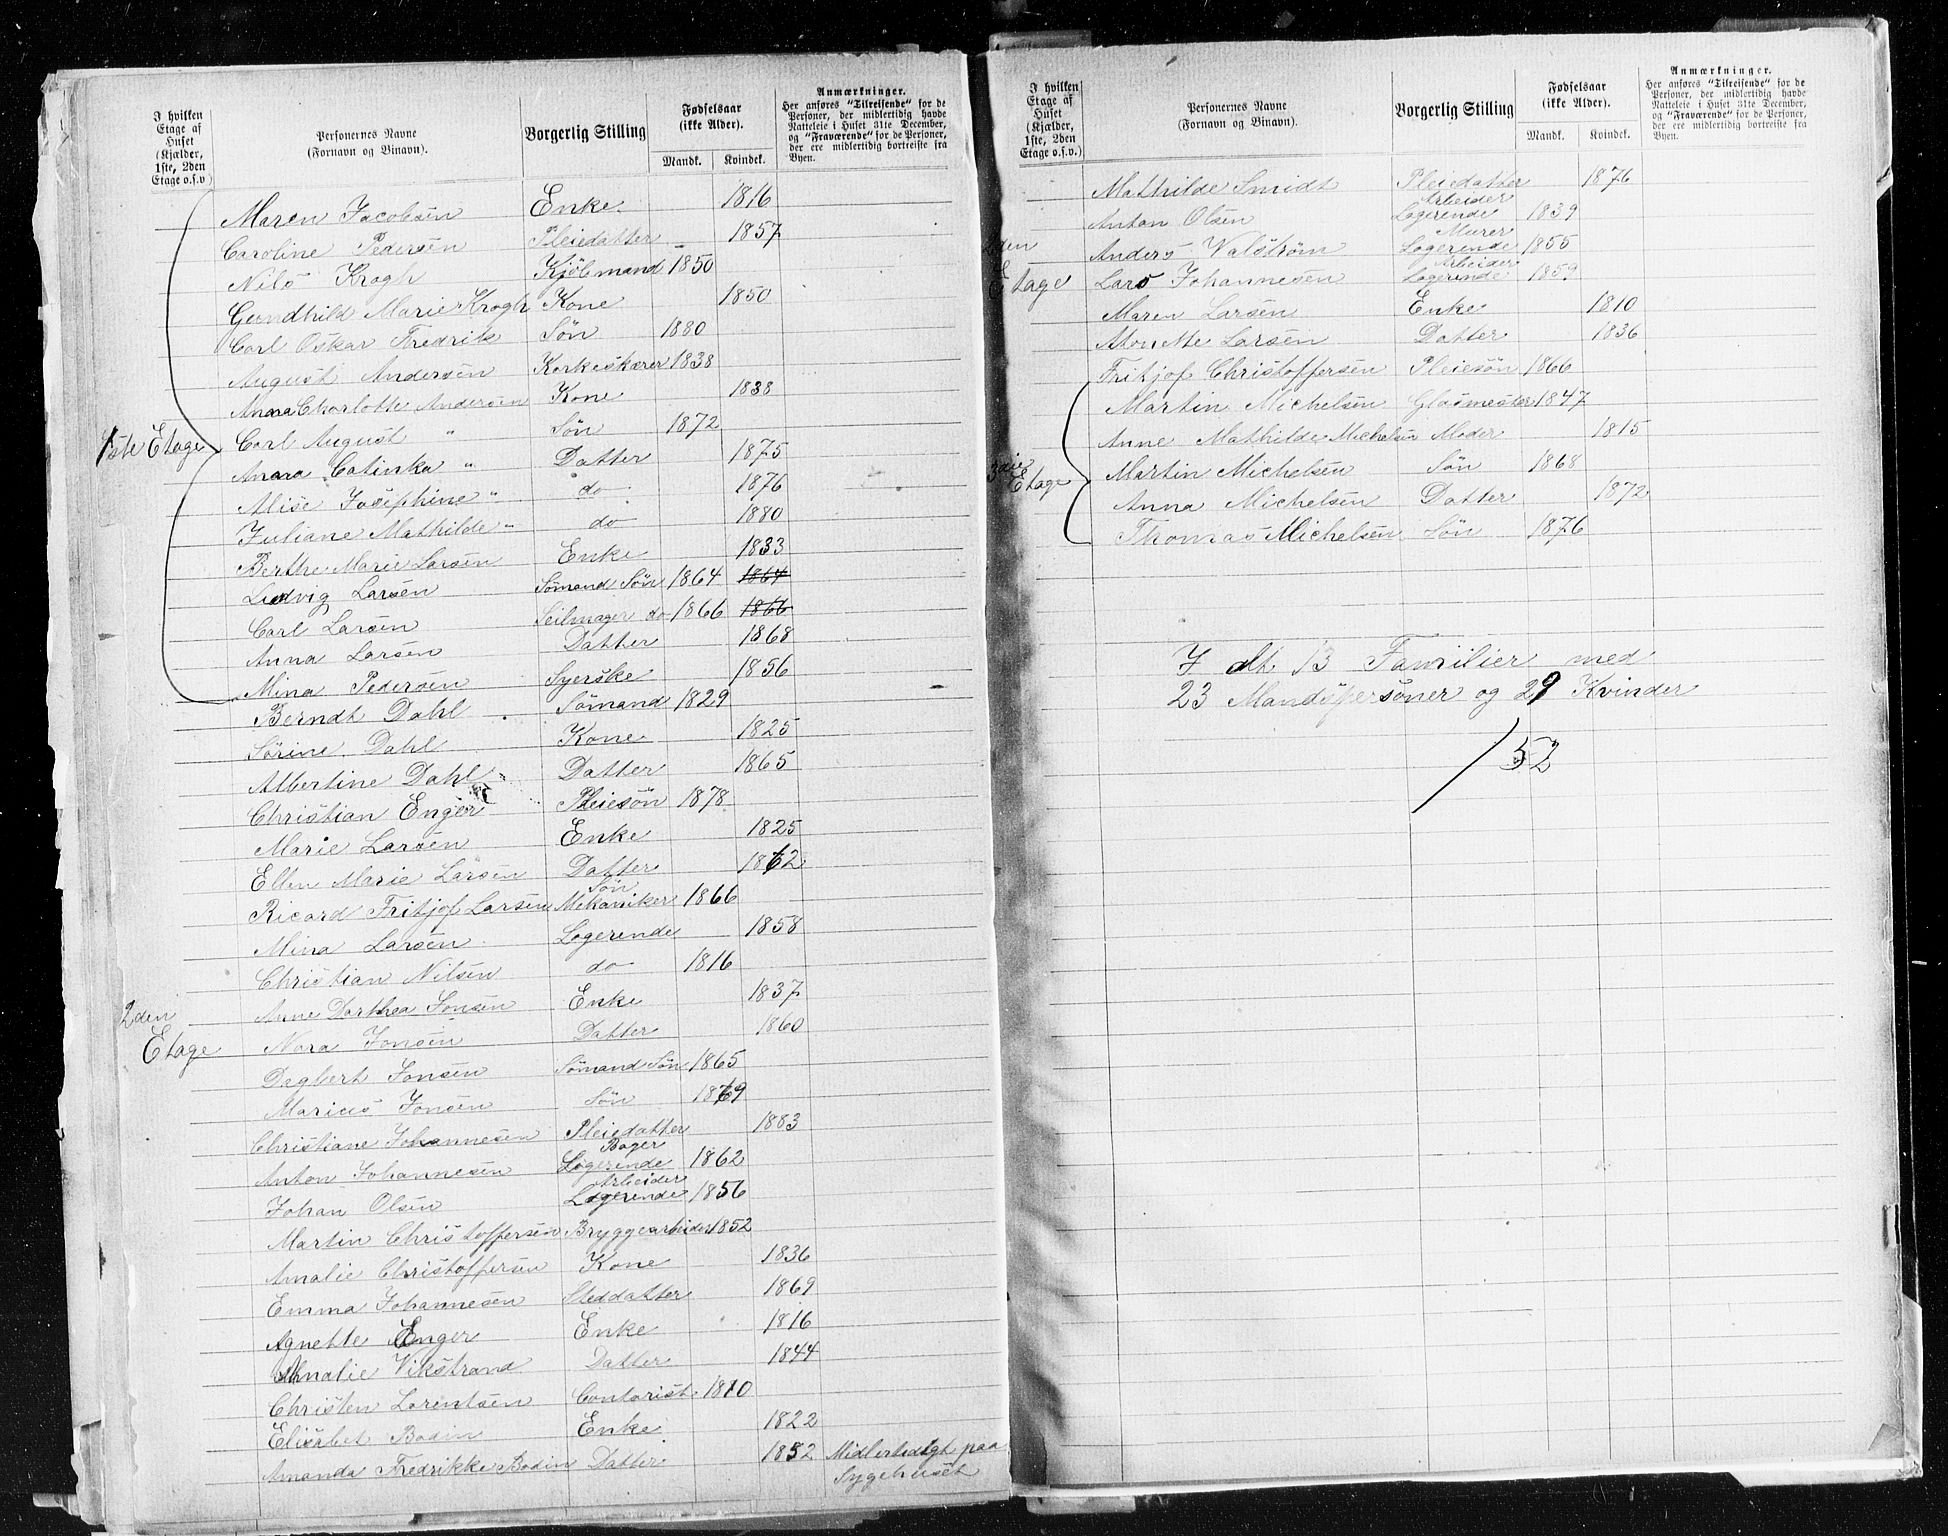 I hvilken
Etage af
Huset
(Kjælder,
1ste, 2den
Etage o.s.v)
Personernes Navne
(Fornavn og Binavn).
Borgerlig Stilling
Fødselsaar
(ikke Alder).
Mandk. Kvindek.
Anmærkninger.
Her anføres "Tilreisende" for de
Personer, der midlertidig havde
Natteleie i Huset 31te December,
og "Fraværende" for de Personer,
der ere midlertidig bortreiste fra
Byen.
Maren Jacobsen Enke 1816
Caroline Pedersen Pleiedatter 1857
Nils Krogh Kjöbmand 1850
Gundhild Marie Krogh Kone 1850
Carl Oskar Fredrik Sön 1880
August Andersen Korkeskærer 1838
Anna Charlotte Andersen Kone 1838
1ste Etage Carl August " Sön 1872
Anna Catinka " Datter 1875
Alise Josephine " do 1876
Juliane Mathilde " do 1880
Berthe Marie Larsen Enke 1833
Ludvig Larsen Sömand Sön 1864 1864
Carl Larsen Seilmager do 1866 1866
Anna Larsen Datter 1868
Mina Pedersen Syerske 1856
Berndt Dahl Sömand 1829
Sörine Dahl Kone 1825
Albertine Dahl Datter 1865
Christian Enger Pleiesön 1878
Marie Larsen Enke 1825
Ellen Marie Larsen Datter 1862
Ricard Fritjof Larsen Sön Mekaniker 1866
Mina Larsen Logerende 1858
Christian Nilsen do 1816
2den Anne Dorthea Jonsen Enke 1837
Etage Nora Jonsen Datter 1860
Dagbert Jonsen Sömand Sön 1865
Marius Jonsen Sön 1869
Christiane Johannesen Pleiedatter 1883
Anton Johannesen Bager Logerende 1862
Johan Olsen Arbeider Logerende 1856
Martin Christoffersen Bryggearbeider 1852
Amalie Christoffersen Kone 1836
Emma Johannesen Steddatter 1869
Agnette Enger Enke 1816
Amalie Vikstrand Datter 1844
Christen Lorentsen Contorist 1810
Elisabet Bodin Enke 1822
Amanda Fredrikke Bodin Datter 1852 Midlertidigt paa
Sygehuset
I hvilken
Etage af
Huset
(Kjælder,
1ste, 2den
Etage o.s.v.)
Personernes Navne
(Fornavn og Binavn).
Borgerlig Stilling
Fødselsaar
(ikke Alder).
Mandk. Kvindek.
Anmærkninger.
Her anføres "Tilreisende" for de
Personer, der midlertidig havde
Natteleie i Huset 31te December,
og "Fraværende" for de Personer,
der ere midlertidig bortreiste fra
Byen.
Mathilde Smidt Pleiedatter 1876
Anton Olsen Arbeider Logerende 1839
2den Anders Valström Murer Logerende 1855
Etage Lars Johannesen Arbeider Logerende 1859
Maren Larsen Enke 1810
Monette Larsen Datter 1836
Fritjof Christoffersen Pleiesön 1866
Martin Michelsen Glasmester 1847
Anne Mathilde Michelsen Moder 1815
3die Martin Michelsen Sön 1868
Etage Anna Michelsen Datter 1872
Thomas Michelsen Sön 1876
I alt 13 Familier med
23 Mandspersoner og 29 Kvinder
/ 52